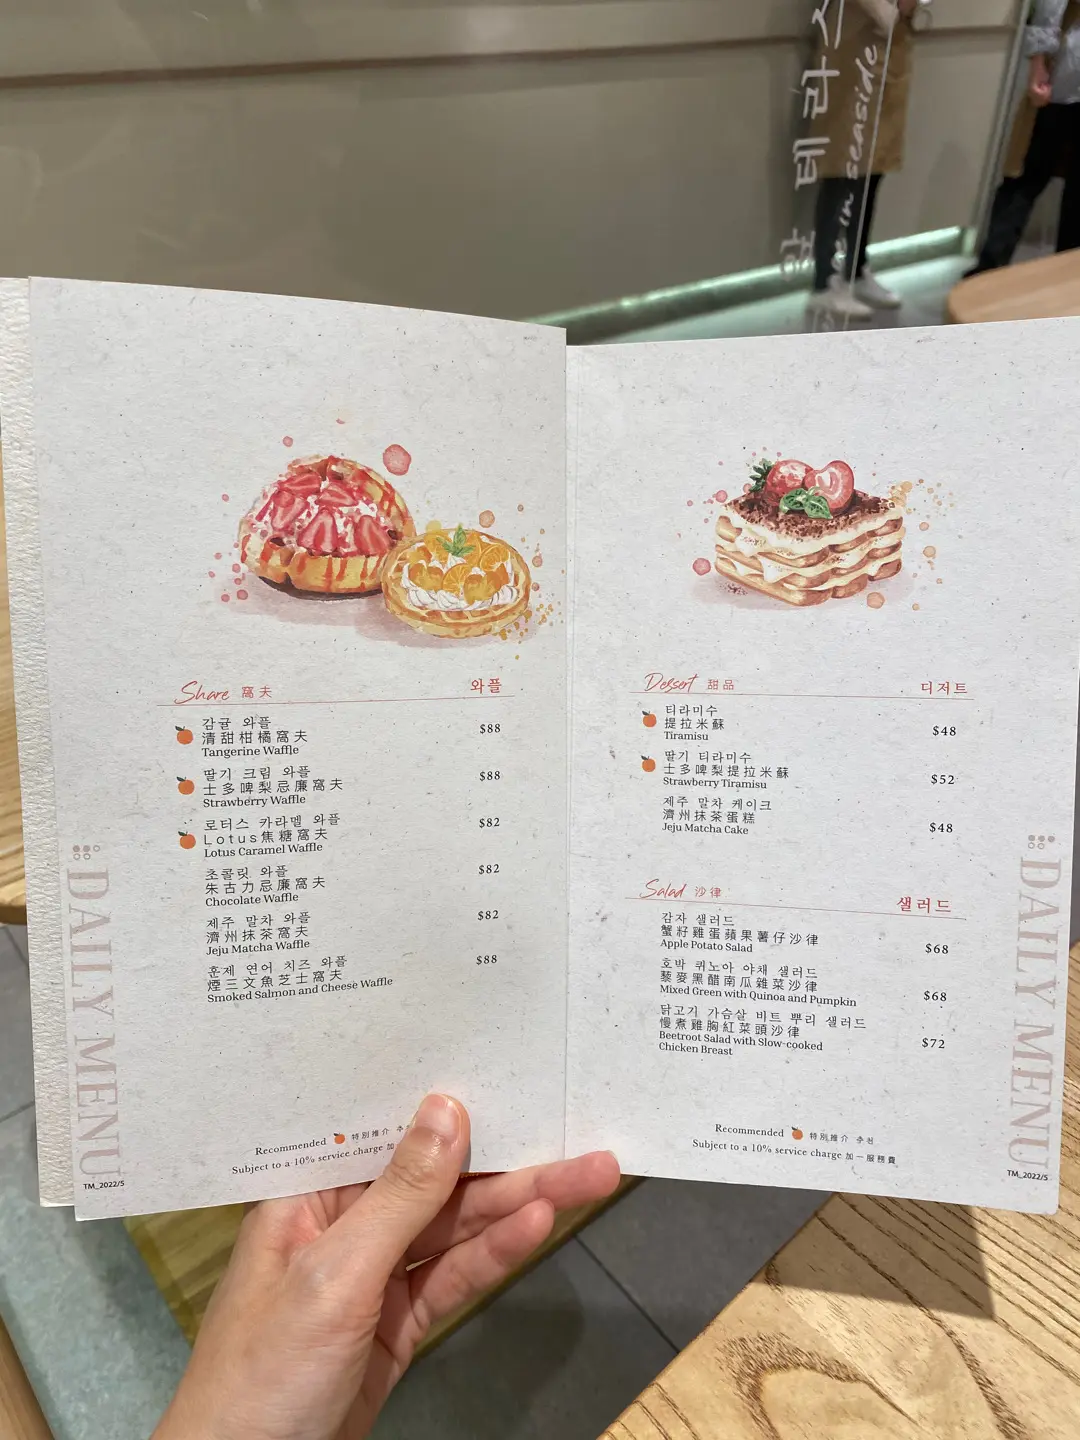 테라스
in seaside
Share 窩夫 와플
감귤 와플
清甜柑橘窩夫 $88
Tangerine Waffle
딸기 크림 와플
士多啤梨忌廉窩夫 $88
Strawberry Waffle
로터스 카라멜 와플
Lotus焦糖窩夫 $82
Lotus Caramel Waffle
초콜릿 와플
朱古力忌廉窩夫 $82
Chocolate Waffle
제주 말차 와플
濟州抹茶窩夫 $82
Jeju Matcha Waffle
훈제 연어 치즈 와플
煙三文魚芝士窩夫 $88
Smoked Salmon and Cheese Waffle
Recommended 特別推介
Subject to a 10% service charge 加一
TM_2022/5
DAILY MENU
Dessert 甜品 디저트
티라미수
提拉米蘇 $48
Tiramisu
딸기 티라미수
士多啤梨提拉米蘇 $52
Strawberry Tiramisu
제주 말차 케이크
濟州抹茶蛋糕 $48
Jeju Matcha Cake
Salad 沙律 샐러드
감자 샐러드
蟹籽雞蛋蘋果薯仔沙律 $68
Apple Potato Salad
호박 퀴노아 야채 샐러드
藜麥黑醋南瓜雜菜沙律 $68
Mixed Green with Quinoa and Pumpkin
닭고기 가슴살 비트 뿌리 샐러드
慢煮雞胸紅菜頭沙律 $72
Beetroot Salad with Slow-cooked
Chicken Breast
Recommended 特別推介 추천
Subject to a 10% service charge 加一服務費
TM_2022/5
DAILY MENU